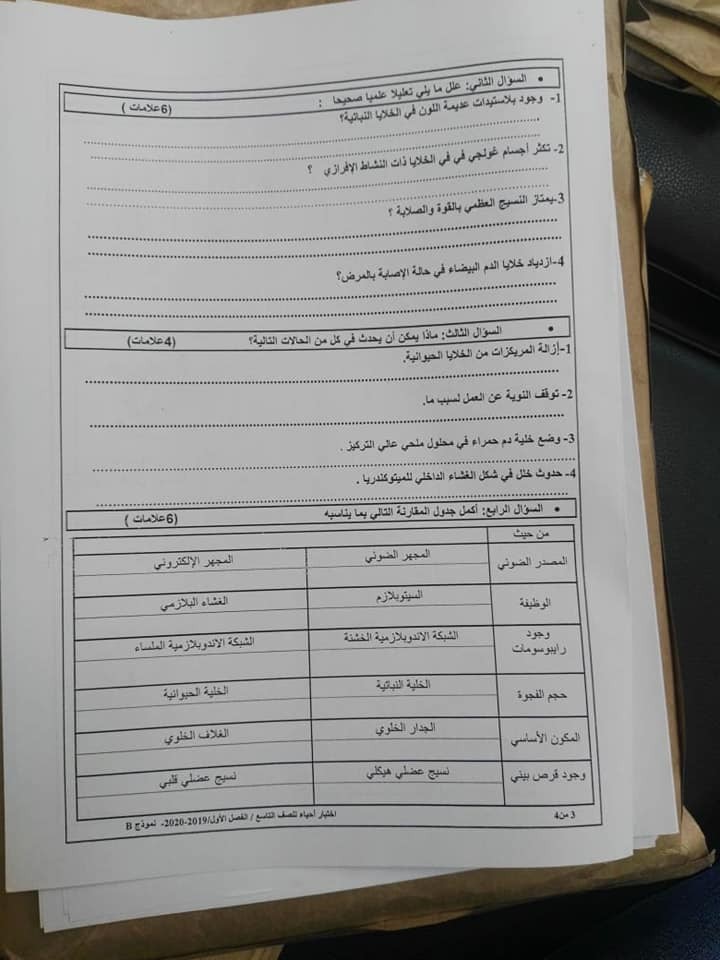 • السؤال الثاني: علل ما يلي تعليلا علميا صحيحا : (6علامات )
1- وجود بلاستيدات عديمة اللون في الخلايا النباتية؟
2- تكثر أجسام غولجي في في الخلايا ذات النشاط الإفرازي ؟
3-يمتاز النسيج العظمي بالقوة والصلابة ؟
4-ازدياد خلايا الدم البيضاء في حالة الإصابة بالمرض؟
• السؤال الثالث: ماذا يمكن أن يحدث في كل من الحالات التالية؟ (4علامات)
1-إزالة المريكزات من الخلايا الحيوانية.
2- توقف النوية عن العمل لسبب ما.
3- وضع خلية دم حمراء في محلول ملحي عالي التركيز .
4- حدوث خلل في شكل الغشاء الداخلي للميتوكندريا .
• السؤال الرابع: أكمل جدول المقارنة التالي بما يناسبه (6علامات )
من حيث
المصدر الضوئي المجهر الضوئي المجهر الإلكتروني
الوظيفة السيتوبلازم الغشاء البلازمي
وجود رايبوسومات الشبكة الاندوبلازمية الخشنة الشبكة الاندوبلازمية الملساء
حجم الفجوة الخلية النباتية الخلية الحيوانية
المكون الأساسي الجدار الخلوي الغلاف الخلوي
وجود قرص بيني نسيج عضلي هيكلي نسيج عضلي قلبي
3 من4 اختبار أحياء للصف التاسع / الفصل الأول/2019-2020- نموذج B